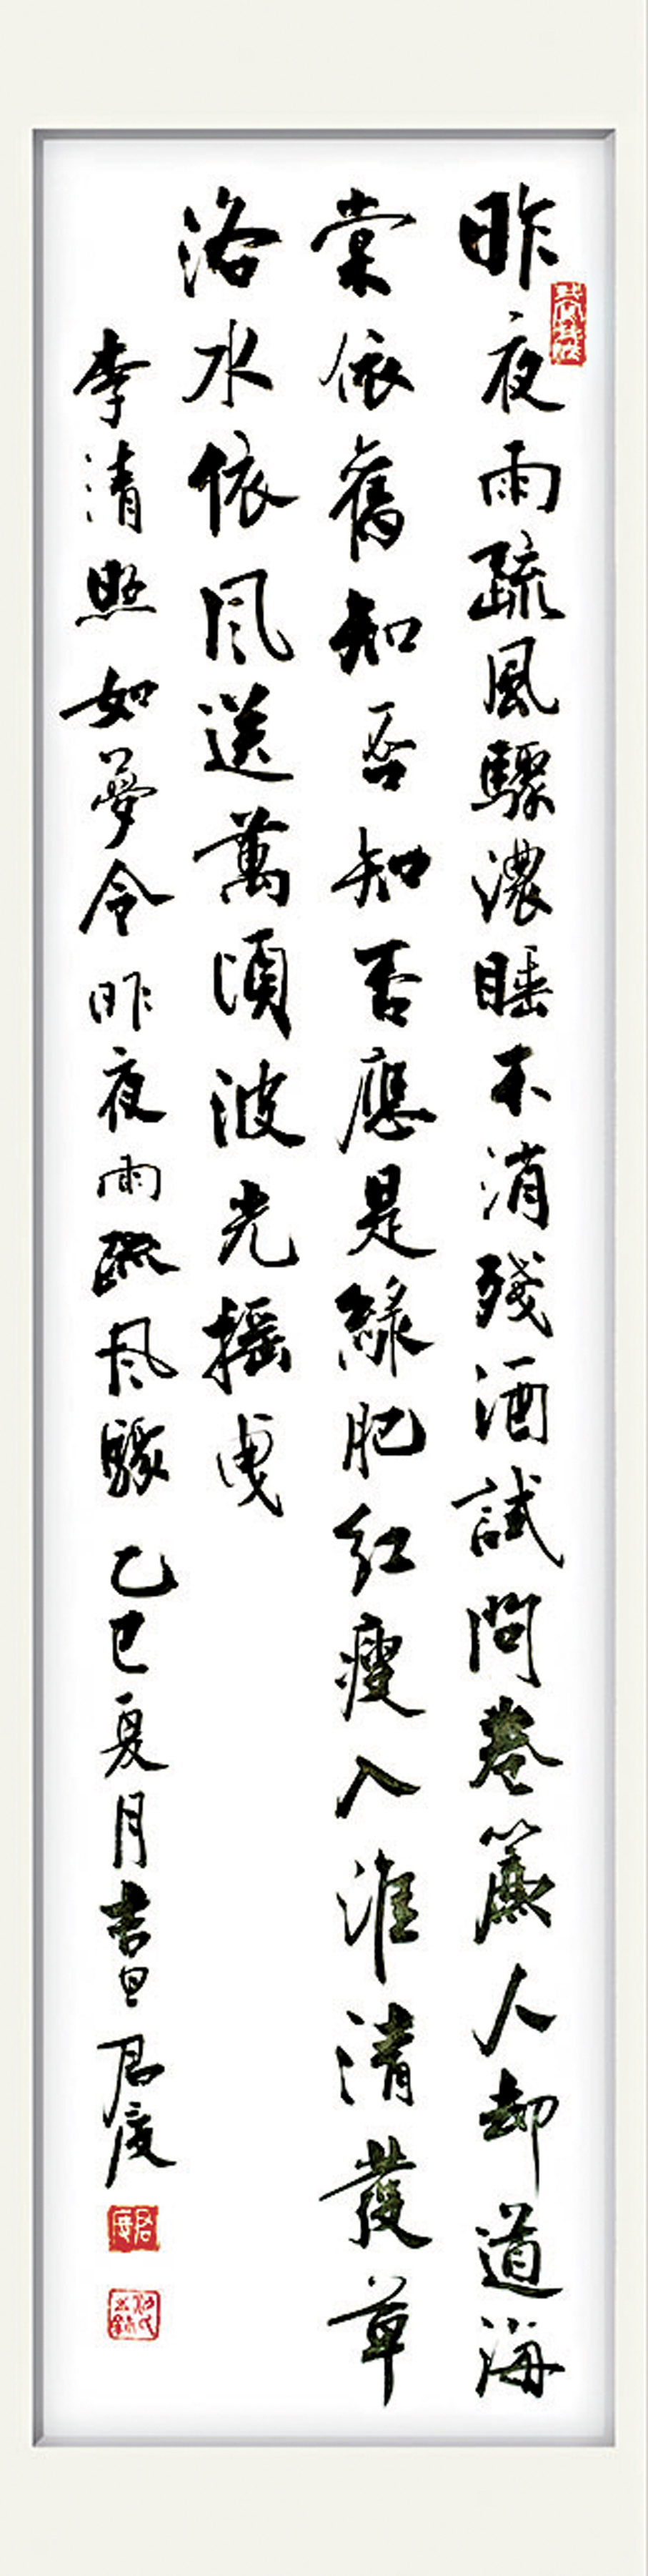 昨夜雨疏風驟濃睡不消殘酒試問卷簾人却道海
棠依舊知否知否應是綠肥红瘦入淮清萋草
洛水依风送萬頃波光摇曳
李清照如夢令昨夜雨疏风驟乙巳夏月書君度